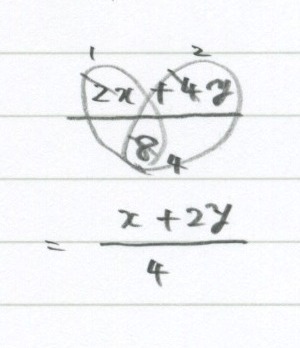 1 2
2x + 4y
8 4
= x + 2y
4